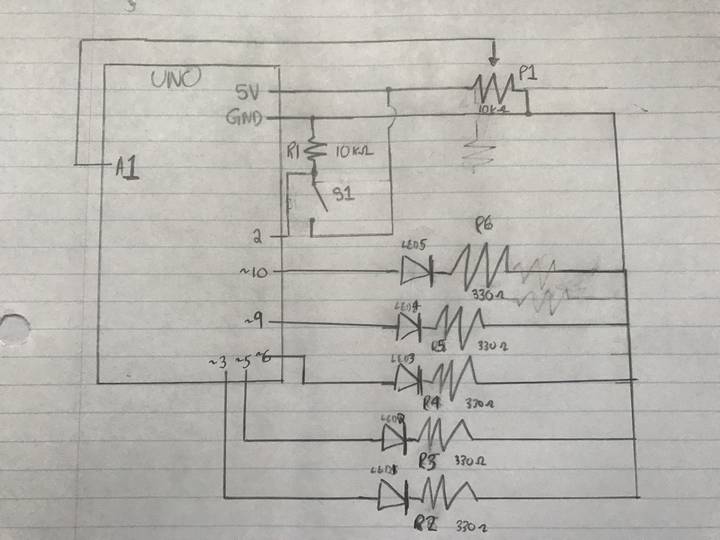 UNO
5V
P1
10KΩ
GND
R1
10KΩ
A1
S1
2
R6
LED5
~10
330Ω
LED4
~9
R5
330Ω
~3
~5
~6
LED3
R4
330Ω
LED2
R3
330Ω
LED1
R2
330Ω